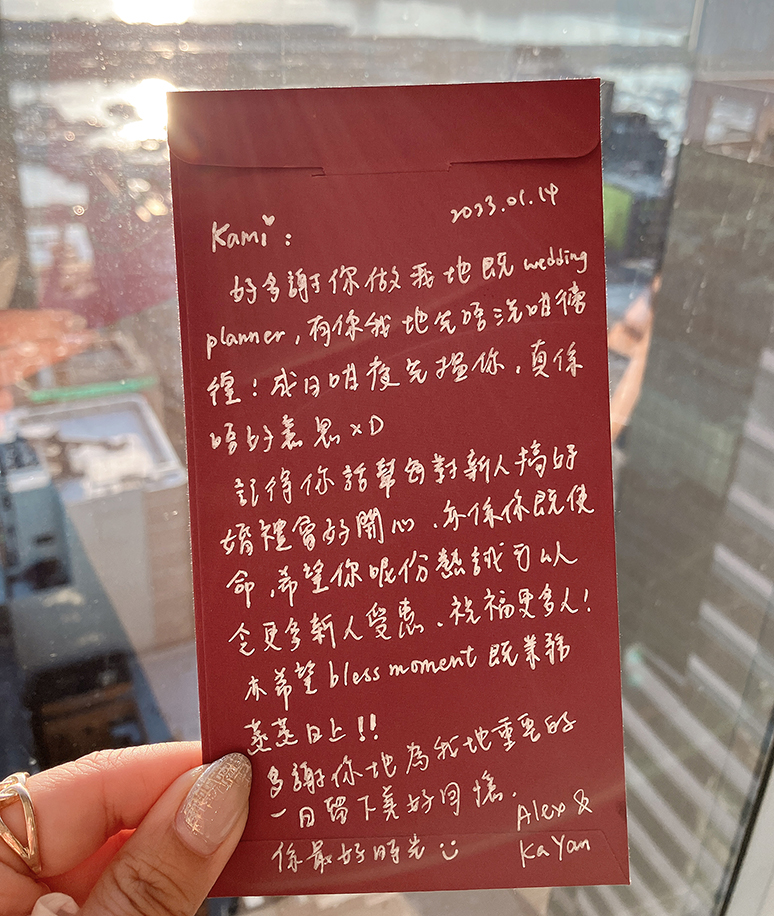 2023.01.14
Kami♡:
好多謝你做我地既 wedding
planner, 有你我地先唔洗咁徬
徨！成日咁夜先搵你，真係
唔好意思 xD
記得你話幫每對新人搞好
婚禮會好開心，亦係你既使
命，希望你呢份熱誠可以
令更多新人受惠、祝福更多人！
亦希望 bless moment 既業務
蒸蒸日上！！
多謝你地為我地重要的
一日留下美好回憶.
係最好時光
Alex &
Ka Yan